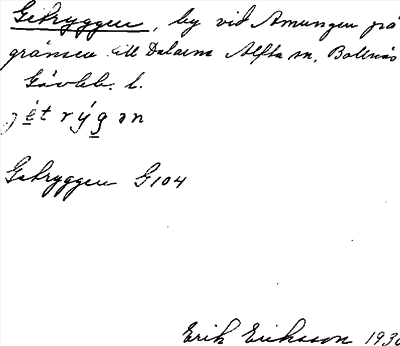 Getryggen, by vid Amungen på
gränsen till Dalarna Alfta sn, Bollnäs
Gävleb. l.
jétrýgən
Getryggen G104
Erik Eriksson 1930